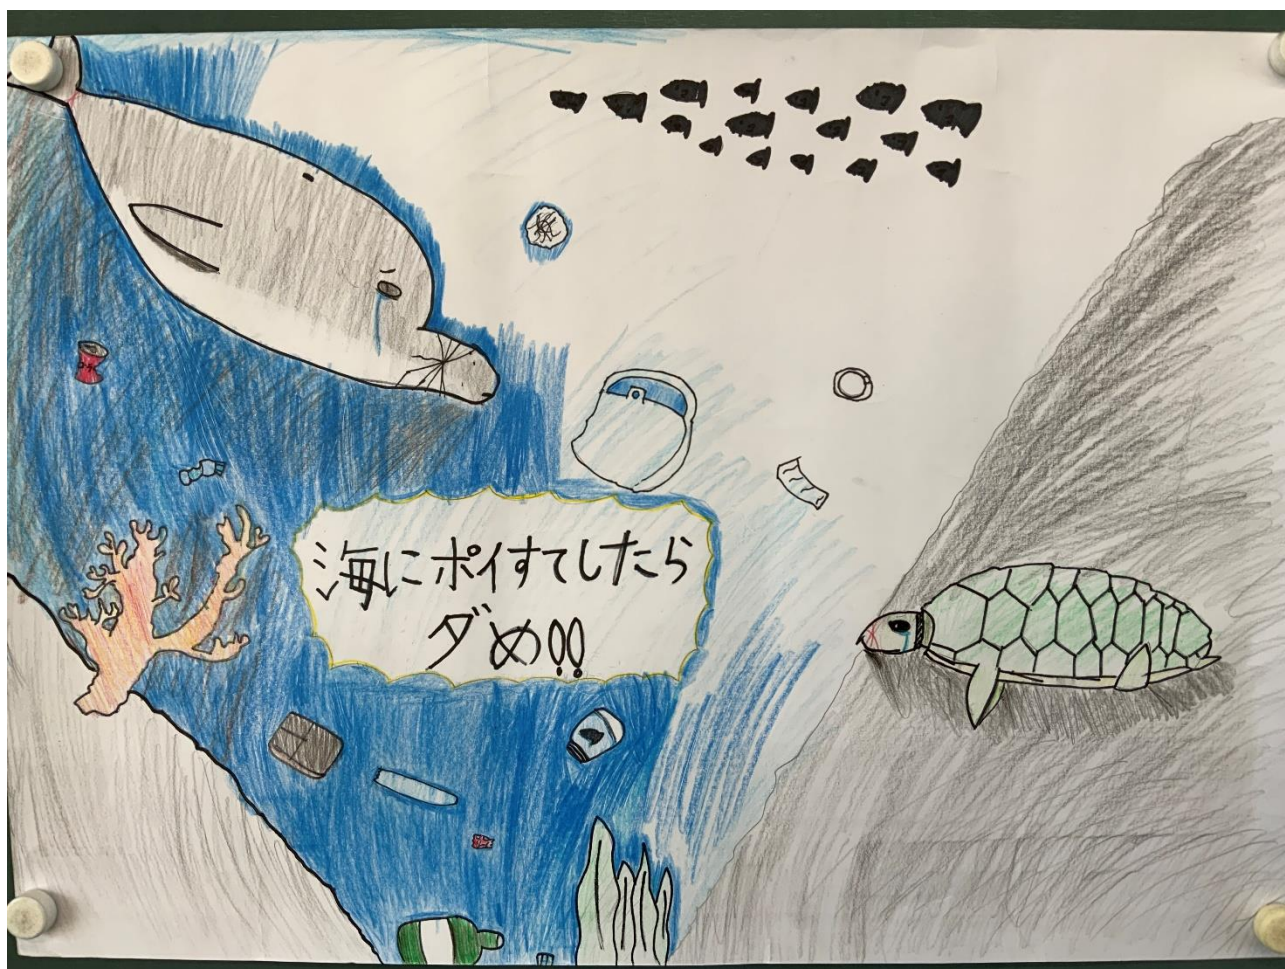 海にポイすてしたら
ダめ!!